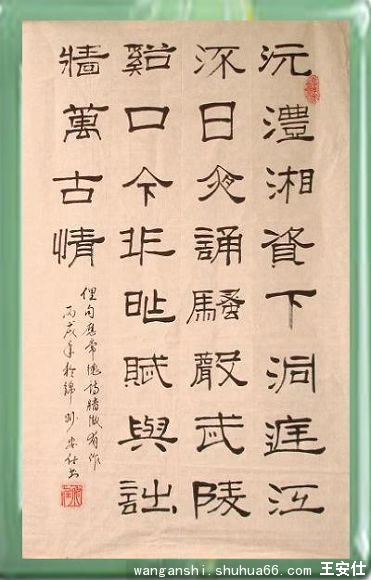 沅澧湘資下洞庭江
深日夜誦騷聲武陵
谿口今非昨賦與詩
牆萬古情
俚句應常德詩牆徵作
丙戌年於錦州安仕书
wanganshi.shuhua66.com 王安仕